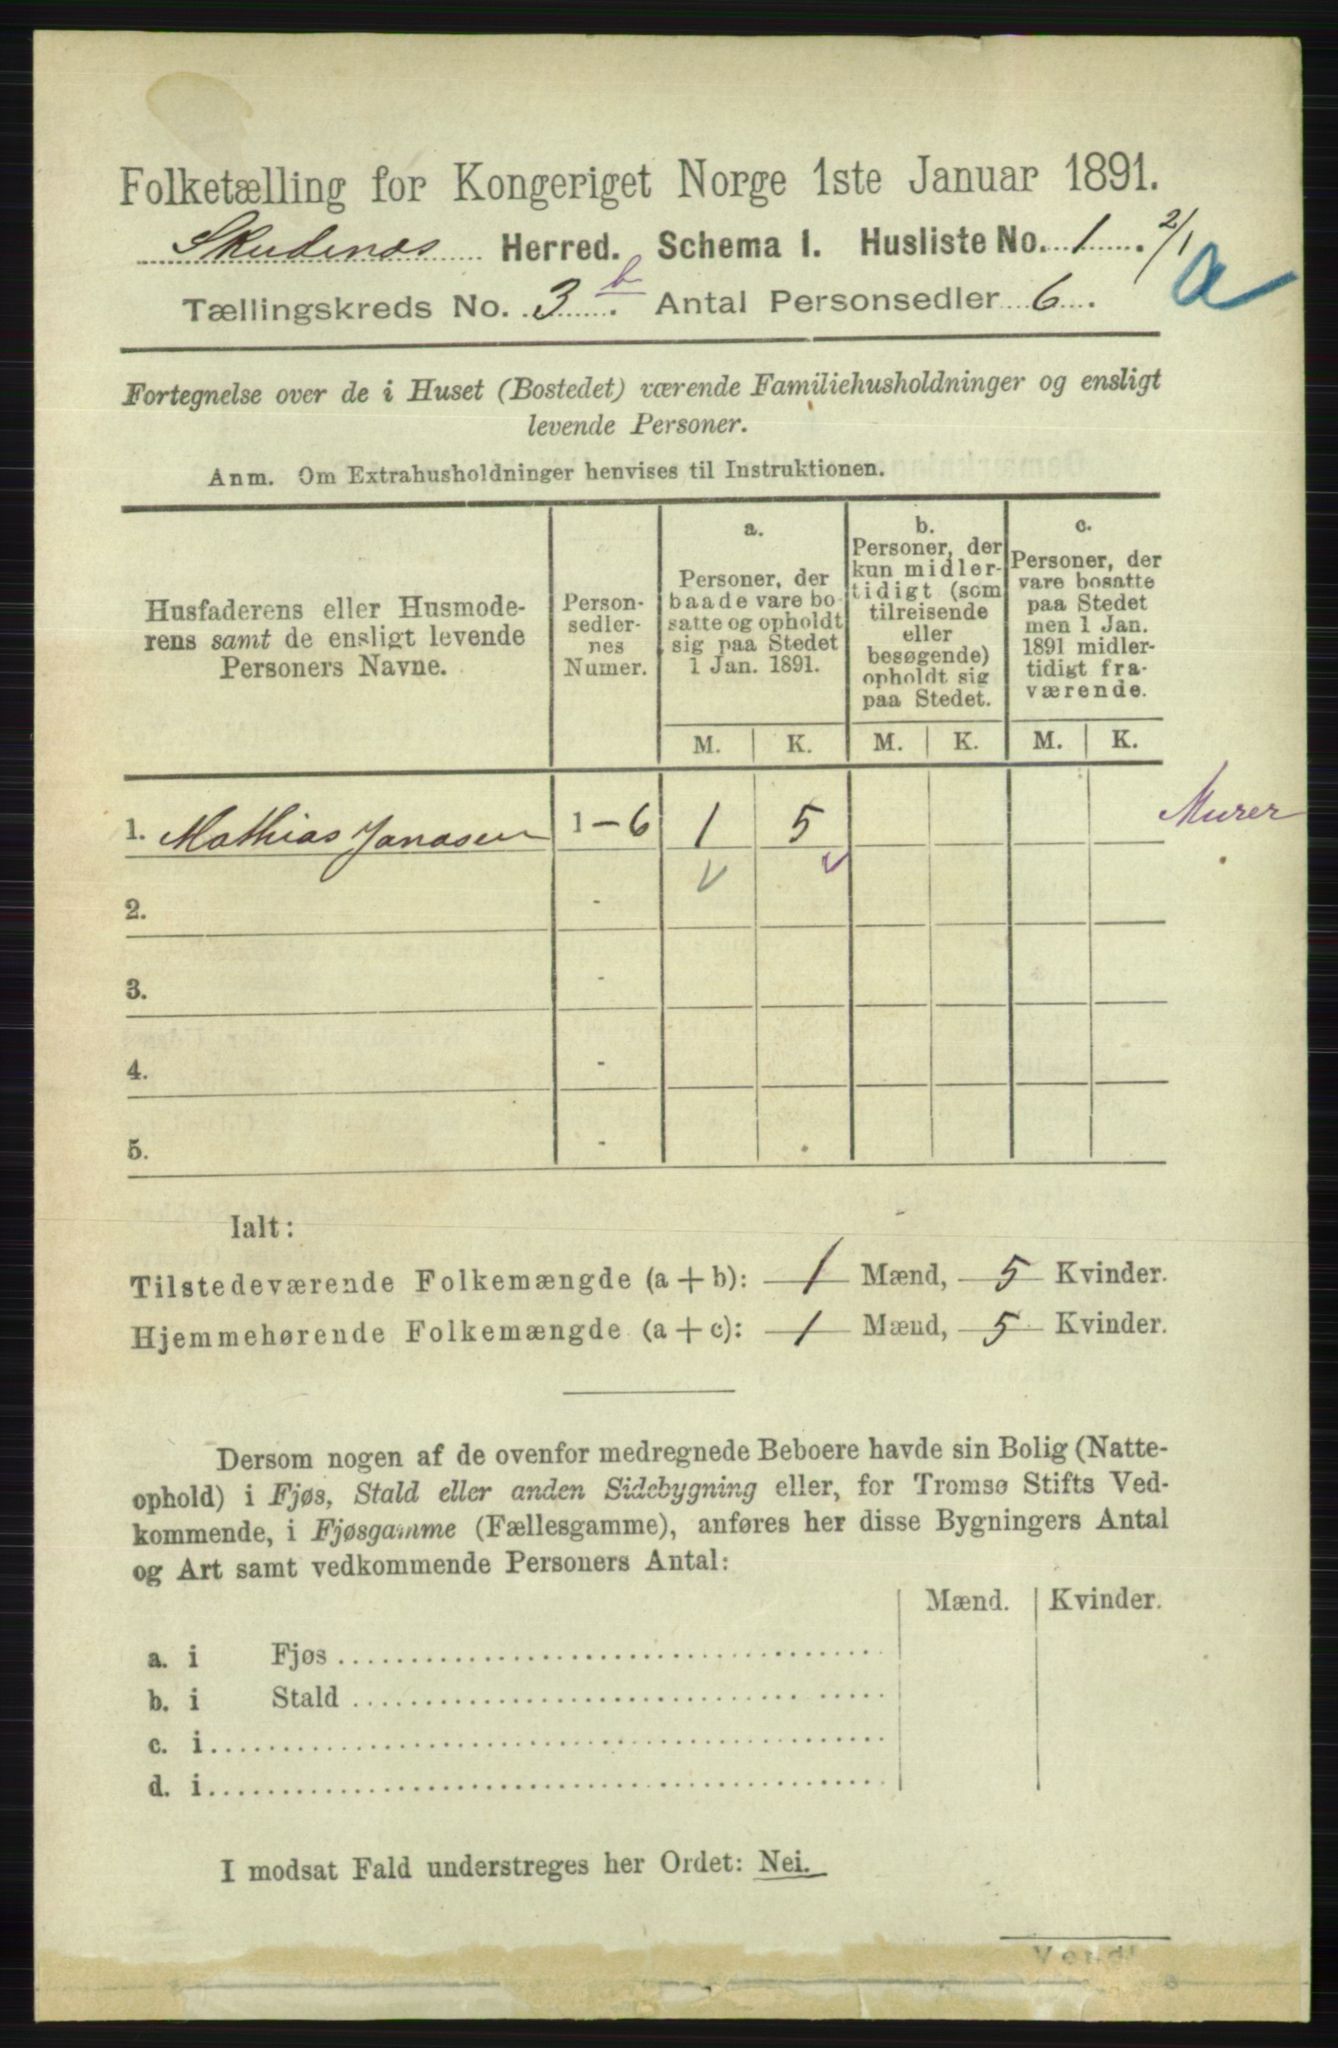 Folketælling for Kongeriget Norge 1ste Januar 1891.
Skudenæs Herred. Schema I. Husliste No. 1. 2/1
a
Tællingskreds No. 3 b. Antal Personsedler 6.
Fortegnelse over de i Huset (Bostedet) værende Familiehusholdninger og ensligt
levende Personer.
Anm. Om Extrahusholdninger henvises til Instruktionen.
Husfaderens eller Husmode-
rens samt de ensligt levende
Personers Navne.
Person-
sedler-
nes
Numer.
a.
Personer, der
baade vare bo-
satte og opholdt
sig paa Stedet
1 Jan. 1891.
b.
Personer, der
kun midler-
tidigt (som
tilreisende
eller
besøgende)
opholdt sig
paa Stedet.
c.
Personer, der
vare bosatte
paa Stedet
men 1 Jan.
1891 midler-
tidigt fra-
værende.
M. K. M. K. M. K.
1. Mathias Jonasen 1-6 1 5 Murer
2. -
3. -
4. -
5. -
Ialt:
Tilstedeværende Folkemængde (a+b): 1 Mænd, 5 Kvinder.
Hjemmehørende Folkemængde (a+c): 1 Mænd, 5 Kvinder.
Dersom nogen af de ovenfor medregnede Beboere havde sin Bolig (Natte-
ophold) i Fjøs, Stald eller anden Sidebygning eller, for Tromsø Stifts Ved-
kommende, i Fjøsgamme (Fællesgamme), anføres her disse Bygningers Antal
og Art samt vedkommende Personers Antal:
Mænd. Kvinder.
a. i Fjøs
b. i Stald
c. i
d. i
I modsat Fald understreges her Ordet: Nei.
Vend!